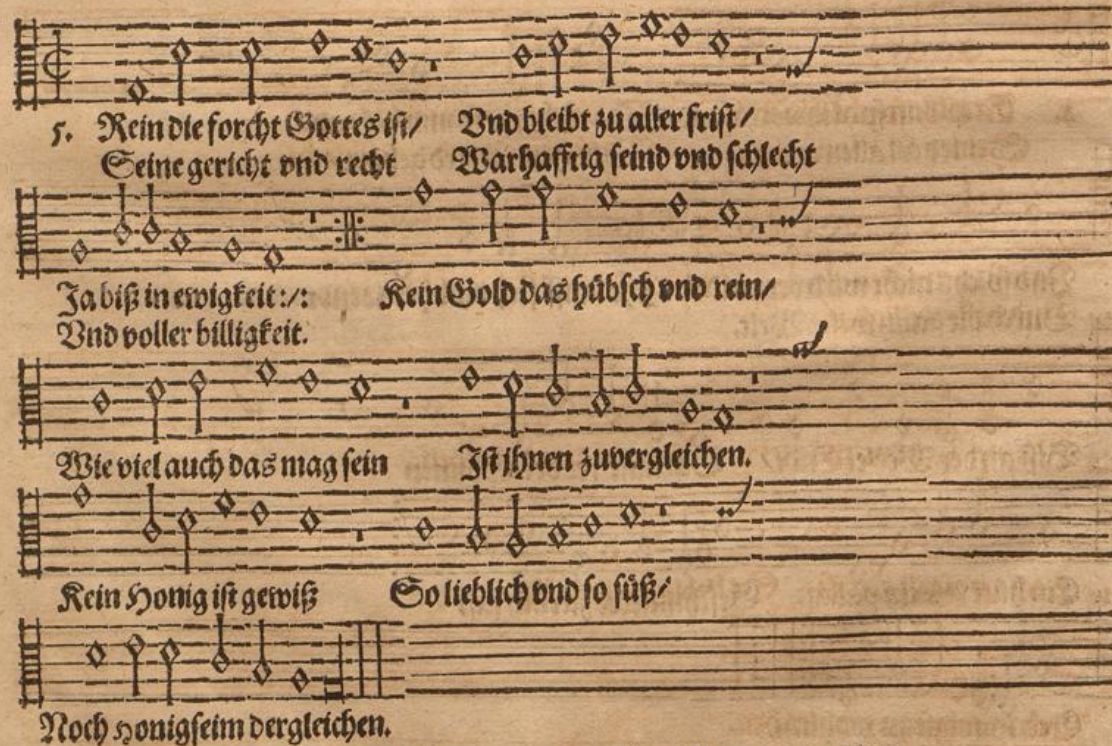 5. Rein die forcht Gottes ist/ Vnd bleibt zu aller frist/
Seine gericht vnd recht Warhafftig seind vnd schlecht
Ja biß in ewigkeit :/: Kein Gold das hübsch vnd rein/
Vnd voller billigkeit.
Wie viel auch das mag sein Ist jhnen zuvergleichen.
Kein Honig ist gewiß So lieblich vnd so süß/
Noch Honigseim dergleichen.